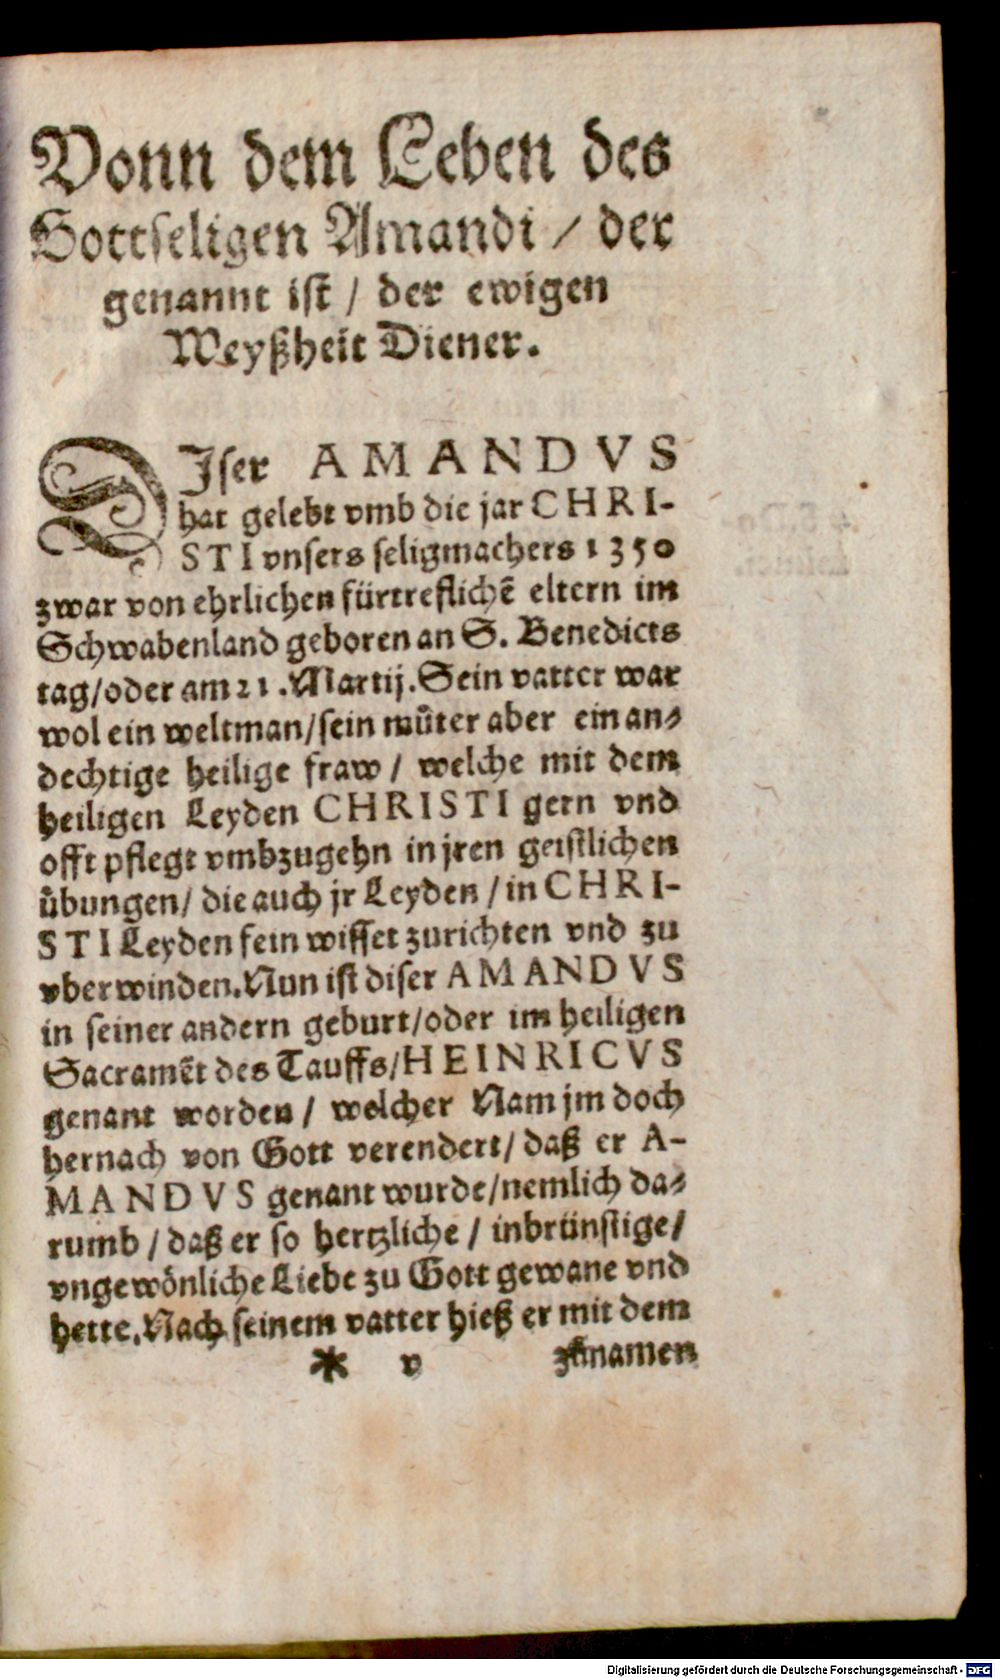 Vonn dem Leben des
Gottseligen Amandi / der
genannt ist / der ewigen
Weyßheit Diener.
DIser AMANDVS
hat gelebt vmb die jar CHRI-
STI vnsers seligmachers 1350
zwar von ehrlichen fürtreflichẽ eltern im
Schwabenland geboren an S. Benedicts
tag/oder am 21. Martij. Sein vatter war
wol ein weltman/sein můter aber ein an-
dechtige heilige fraw / welche mit dem
heiligen Leyden CHRISTI gern vnd
offt pflegt vmbzugehn in jren geistlichen
übungen/ die auch jr Leyden / in CHRI-
STI Leyden fein wisset zurichten vnd zu
vberwinden. Nun ist diser AMANDVS
in seiner andern geburt/oder im heiligen
Sacramẽt des Tauffs/HEINRICVS
genant worden / welcher Nam jm doch
hernach von Gott verendert/ daß er A-
MANDVS genant wurde/nemlich da-
rumb / daß er so hertzliche / inbrünstige/
vngewönliche Liebe zu Gott gewane vnd
hette. Nach seinem vatter hieß er mit dem
* v zůnamen
Digitalisierung gefördert durch die Deutsche Forschungsgemeinschaft - DFG